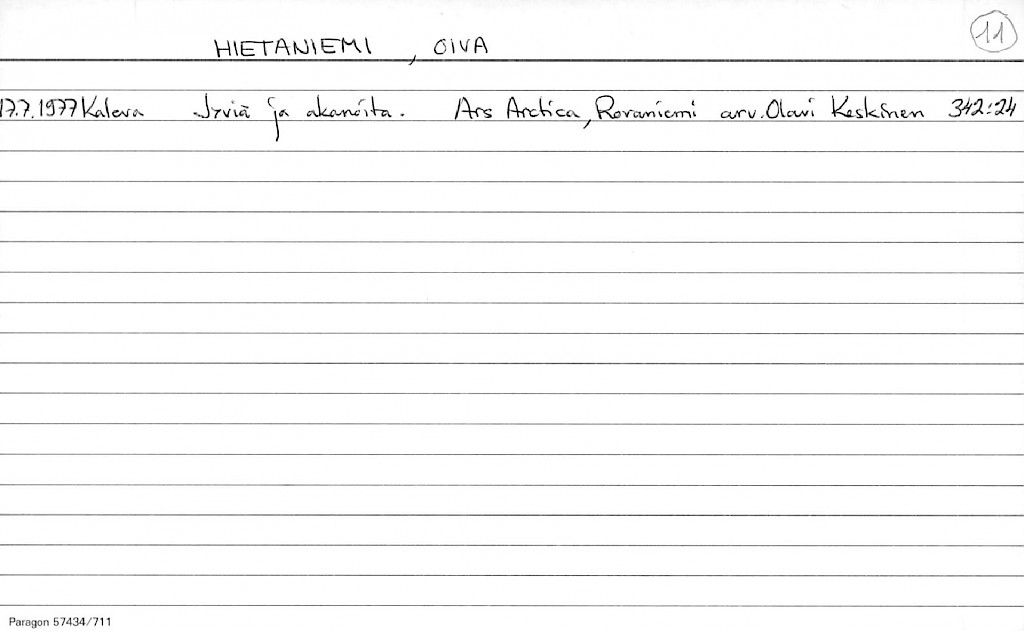 11
HIETANIEMI, OIVA
17.7.1977 Kaleva Jyviä ja akanoita. Ars Arctica, Rovaniemi arv. Olavi Keskinen 342:24
Paragon 57434/711